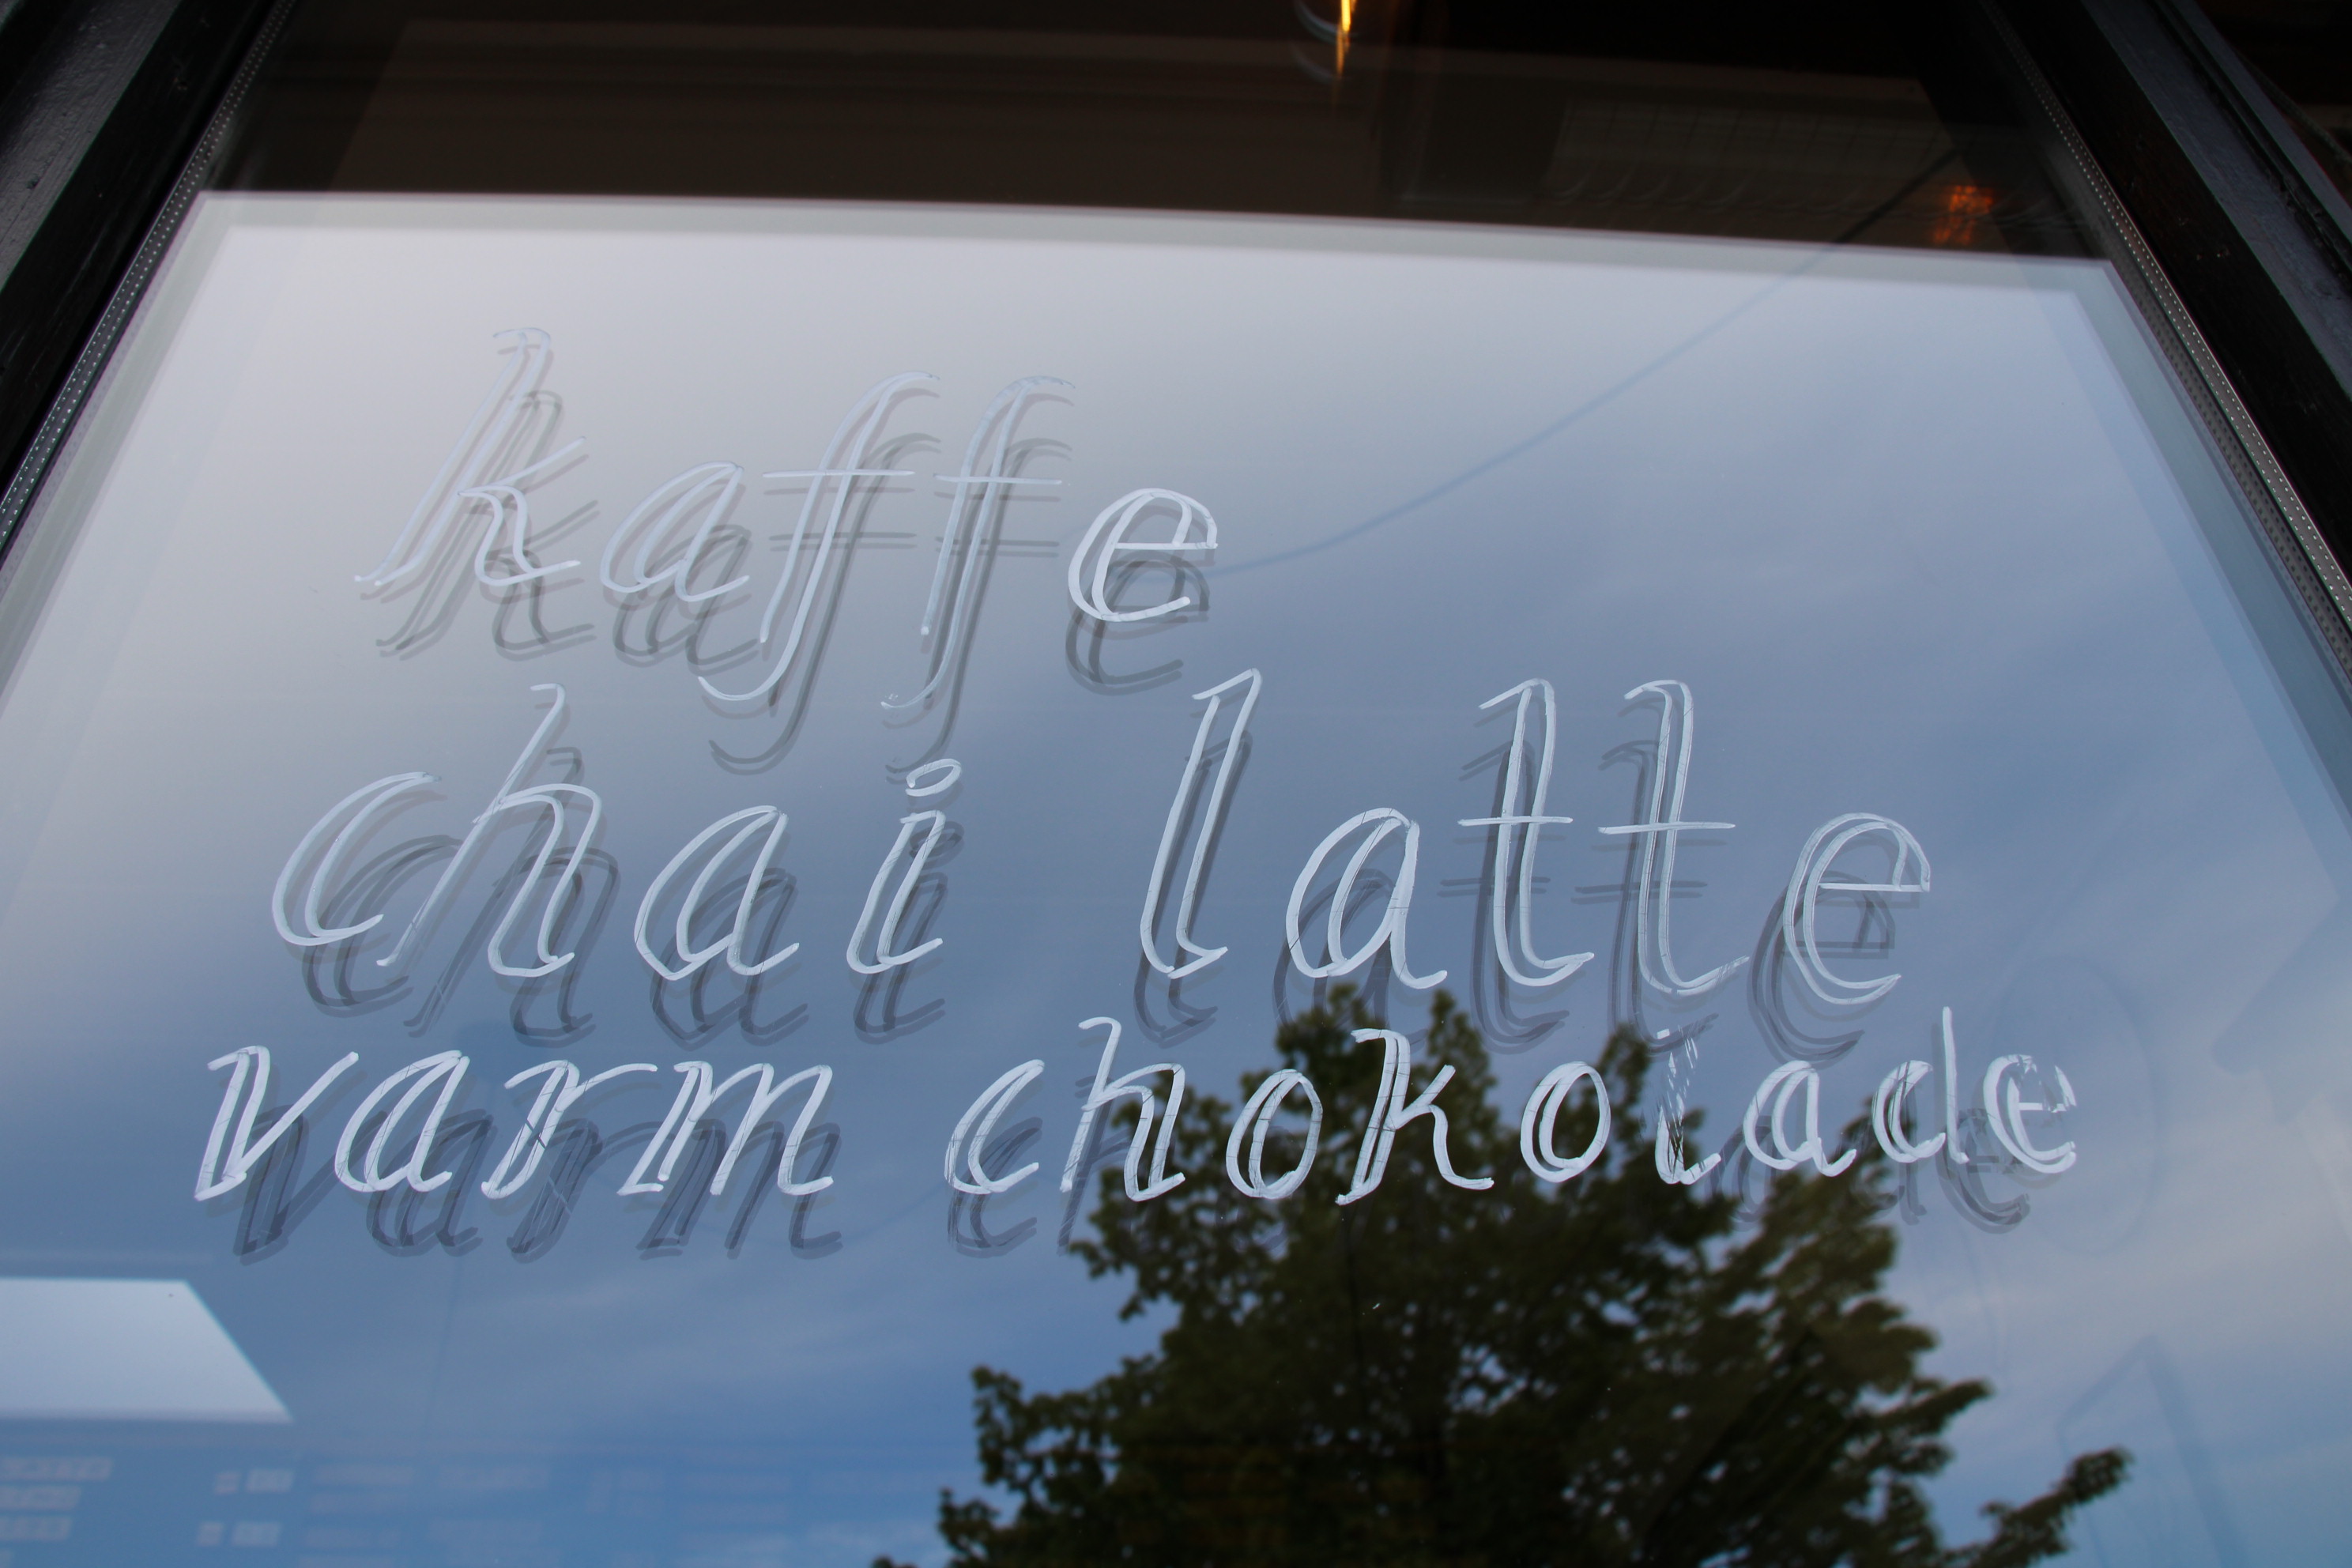 kaffe
chai latte
varm chokolade